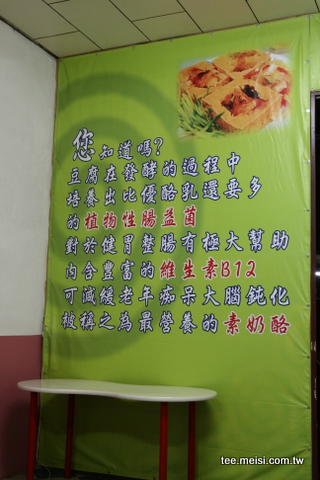 您知道嗎?
豆腐在發酵的過程中
培養出比優酪乳還要多
的植物性腸益菌
對於健胃整腸有極大幫助
內含豐富的維生素B12
可減緩老年痴呆大腦鈍化
被稱之為最營養的素奶酪
tee.meisi.com.tw